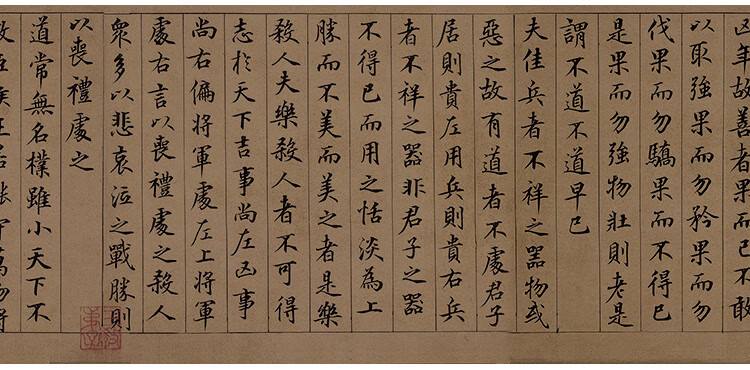 凶年故善者果而已不敢
以取強果而勿矜果而勿
伐果而勿驕果而不得已
是果而勿強物壯則老是
謂不道不道早已
夫佳兵者不祥之器物或
惡之故有道者不處君子
居則貴左用兵則貴右兵
者不祥之器非君子之器
不得已而用之恬淡為上
勝而不美而美之者是樂
殺人夫樂殺人者不可得
志於天下吉事尚左凶事
尚右偏將軍處左上將軍
處右言以喪禮處之殺人
眾多以悲哀泣之戰勝則
以喪禮處之
道常無名樸雖小天下不
敢臣侯王若能守萬物將